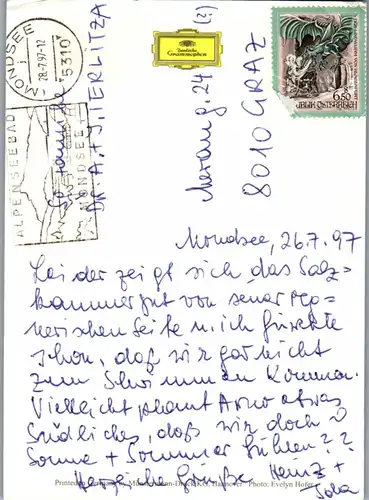 MONDSEE
28.-7.97-12
5310
ALPENSEEBAD
MONDSEE
Deutsche
Grammophon
6.50
REPUBLIK ÖSTERREICH
DR. A. + J. TERLITZA
24
8010 GRAZ
Mondsee, 26.7.97
Leider zeigt sich das Salz=
kammergut von seiner reg=
nerischen Seite u. ich fürchte
schon, daß wir gar nicht
zum Schwimmen kommen.
Vielleicht plant Arno etwas
Südliches, daß wir doch
Sonne + Sommer fühlen??
Herzliche Grüße Heinz +
Printed in Germany by Hannover · Photo: Evelyn Hofer